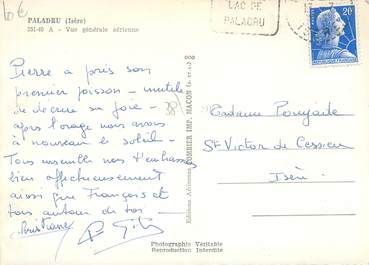 10 €
PALADRU (Isère)
351-40 A - Vue générale aérienne
LAC DE
PALADRU
20F
Pierre a pris son
premier poisson - inutile
de décrire sa joie -
après l'orage nous avons
à nouveau le soleil -
Tous ensemble nous t'embrassons
bien affectueusement
ainsi que François et
tous autour de toi -
Christiane
38
Editions Aériennes COMBIER IMP. MACON (S. et L.)
Madame Poujade
St Victor de Cessieu
Isère
Photographie Véritable
Reproduction Interdite